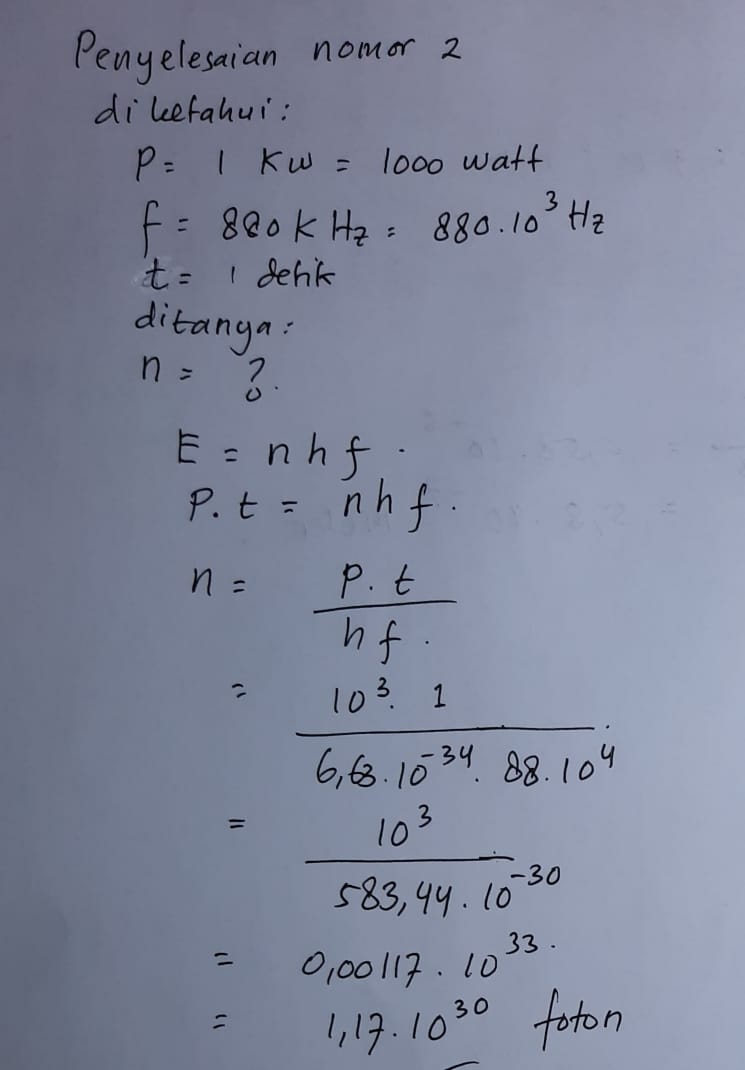 Penyelesaian nomor 2
diketahui:
P = 1 KW = 1000 watt
f = 880 K Hz = 880.10³ Hz
t = 1 detik
ditanya:
n = ?
E = n h f.
P. t = n h f.
n = P. t / h f.
= 10³. 1 / 6,63.10⁻³⁴. 88.10⁴
= 10³ / 583,44.10⁻³⁰
= 0,00117.10³³.
= 1,17.10³⁰ foton